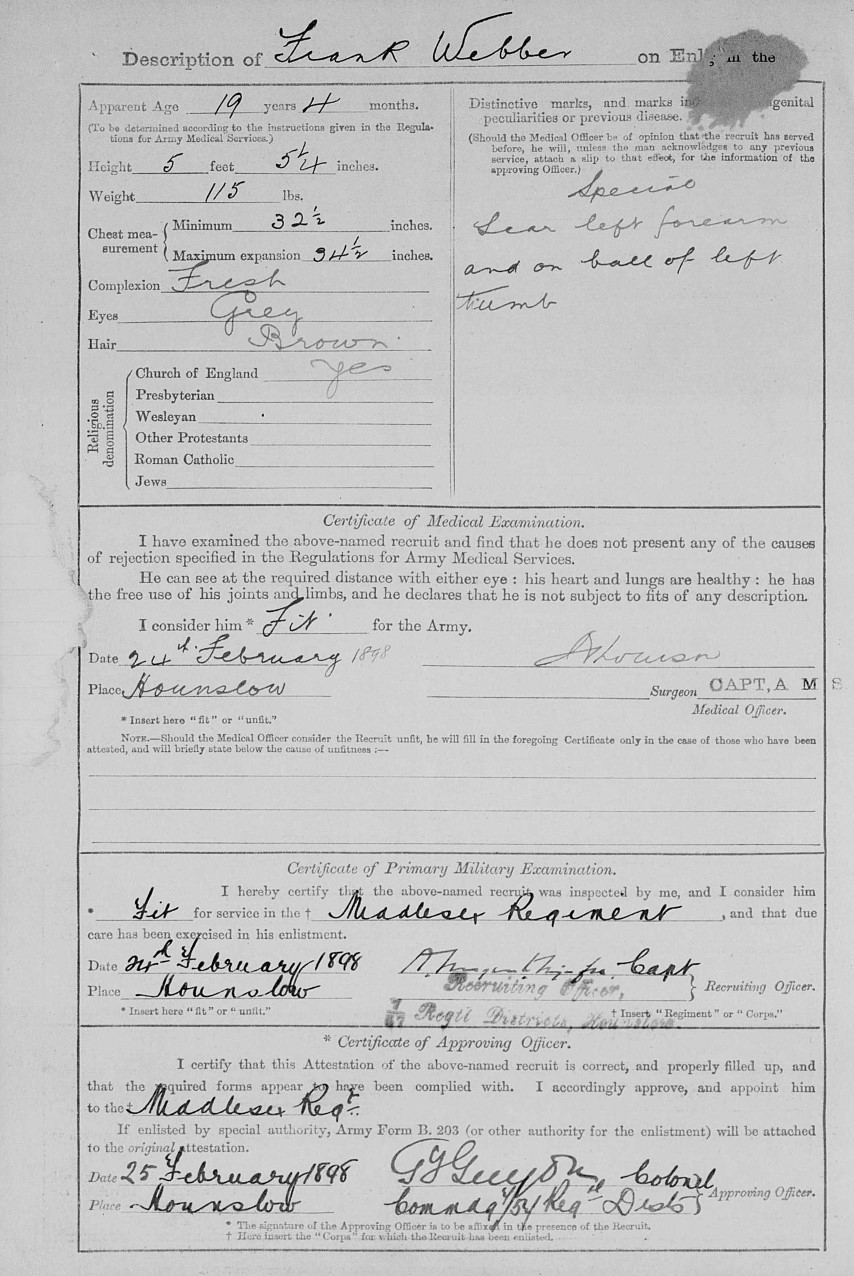 Description of Frank Webber on Enl in the
Apparent Age 19 years 4 months.
(To be determined according to the instructions given in the Regula-
tions for Army Medical Services.)
Height 5 feet 5 1/4 inches.
Weight 115 lbs.
Chest mea-
surement
Minimum 32 1/2 inches.
Maximum expansion 34 1/2 inches.
Complexion Fresh
Eyes Grey
Hair Brown
Religious
denomination
Church of England Yes
Presbyterian
Wesleyan
Other Protestants
Roman Catholic
Jews
Distinctive marks, and marks in genital
peculiarities or previous disease.
(Should the Medical Officer be of opinion that the recruit has served
before, he will, unless the man acknowledges to any previous
service, attach a slip to that effect, for the information of the
approving Officer.)
Special
Scar left forearm
and on ball of left
Thumb
Certificate of Medical Examination.
I have examined the above-named recruit and find that he does not present any of the causes
of rejection specified in the Regulations for Army Medical Services.
He can see at the required distance with either eye : his heart and lungs are healthy : he has
the free use of his joints and limbs, and he declares that he is not subject to fits of any description.
I consider him * Fit for the Army.
Date 24th February 1898
Place Hounslow Surgeon CAPT, A M S
Medical Officer.
* Insert here "fit" or "unfit."
NOTE.—Should the Medical Officer consider the Recruit unfit, he will fill in the foregoing Certificate only in the case of those who have been
attested, and will briefly state below the cause of unfitness :—
Certificate of Primary Military Examination.
I hereby certify that the above-named recruit was inspected by me, and I consider him
* Fit for service in the † Middlesex Regiment, and that due
care has been exercised in his enlistment.
Date 24th February 1898 Capt
Place Hounslow Recruiting Officer, Recruiting Officer.
* Insert here "fit" or "unfit." Regtl Districts, Hounslow † Insert "Regiment" or "Corps."
* Certificate of Approving Officer.
I certify that this Attestation of the above-named recruit is correct, and properly filled up, and
that the required forms appear to have been complied with. I accordingly approve, and appoint him
to the † Middlesex Regt.
If enlisted by special authority, Army Form B. 203 (or other authority for the enlistment) will be attached
to the original attestation.
Date 25 February 1898 Colonel
Place Hounslow Commdg Approving Officer.
* The signature of the Approving Officer is to be affixed in the presence of the Recruit.
† Here insert the "Corps" for which the Recruit has been enlisted.